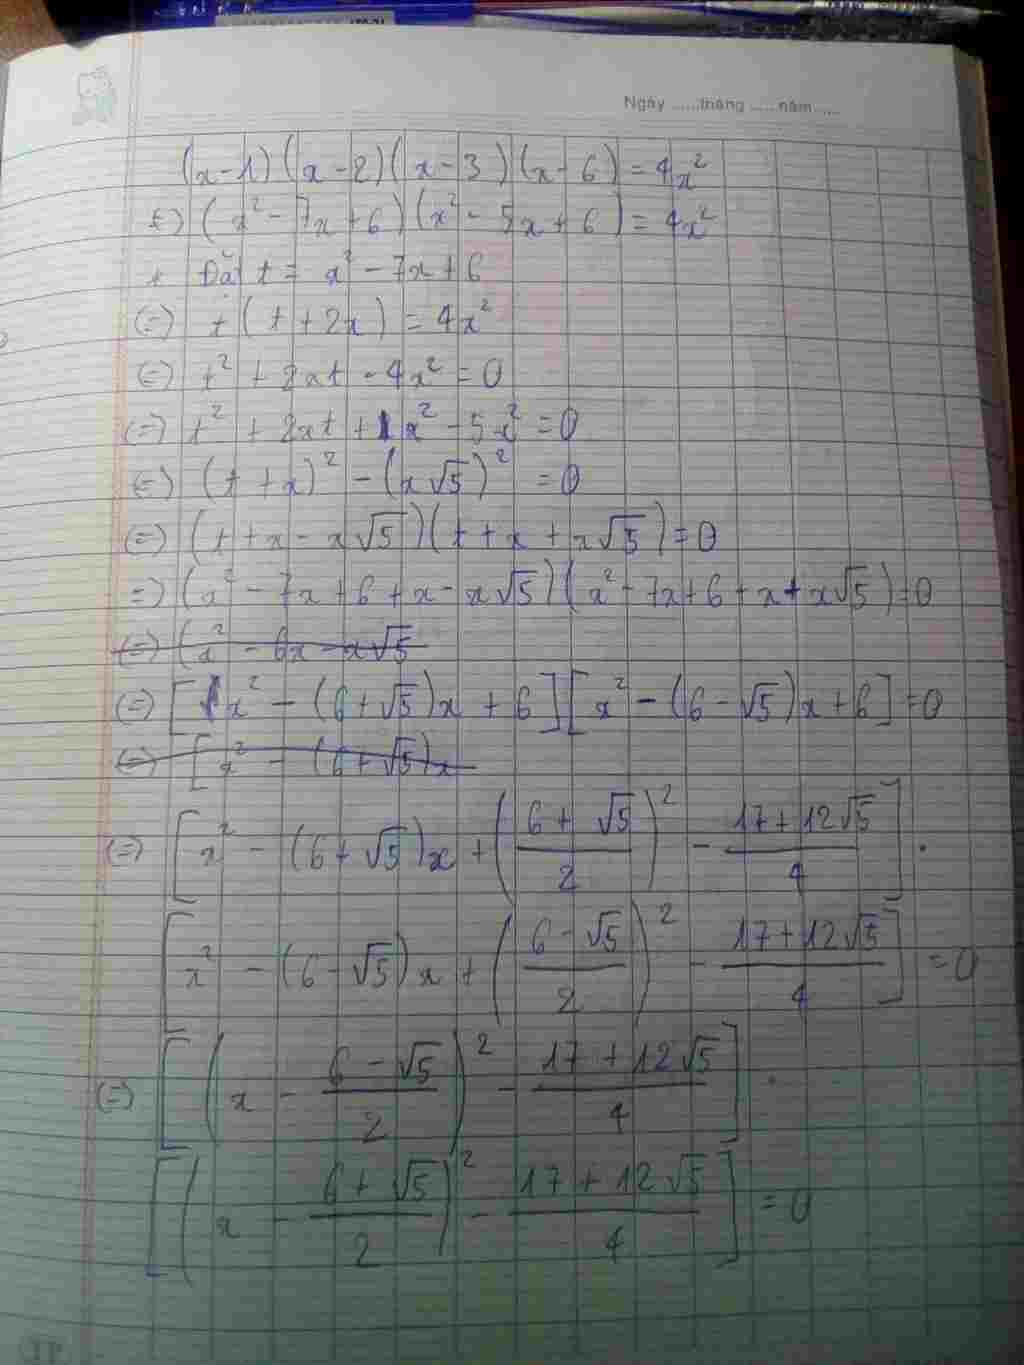 Ngày ......tháng ......năm......
(x-1)(x-2)(x-3)(x-6) = 4x²
(=) (x² - 7x + 6)(x² - 5x + 6) = 4x²
+ Đặt t = x² - 7x + 6
(=) t(t + 2x) = 4x²
(=) t² + 2xt - 4x² = 0
(=) t² + 2xt + 1x² - 5x² = 0
(=) (t + x)² - (x√5)² = 0
(=) (t + x - x√5)(t + x + x√5) = 0
=) (x² - 7x + 6 + x - x√5)(x² - 7x + 6 + x + x√5) = 0
(=) (x² - 6x - x√5
(=) [x² - (6 + √5)x + 6][x² - (6 - √5)x + 6] = 0
(=) [x² - (6 + √5)x
(=) [x² - (6 + √5)x + ((6 + √5)/2)² - (17 + 12√5)/4] .
[x² - (6 - √5)x + ((6 - √5)/2)² - (17 + 12√5)/4] = 0
(=) [(x - (6 - √5)/2)² - (17 + 12√5)/4] .
[(x - (6 + √5)/2)² - (17 + 12√5)/4] = 0